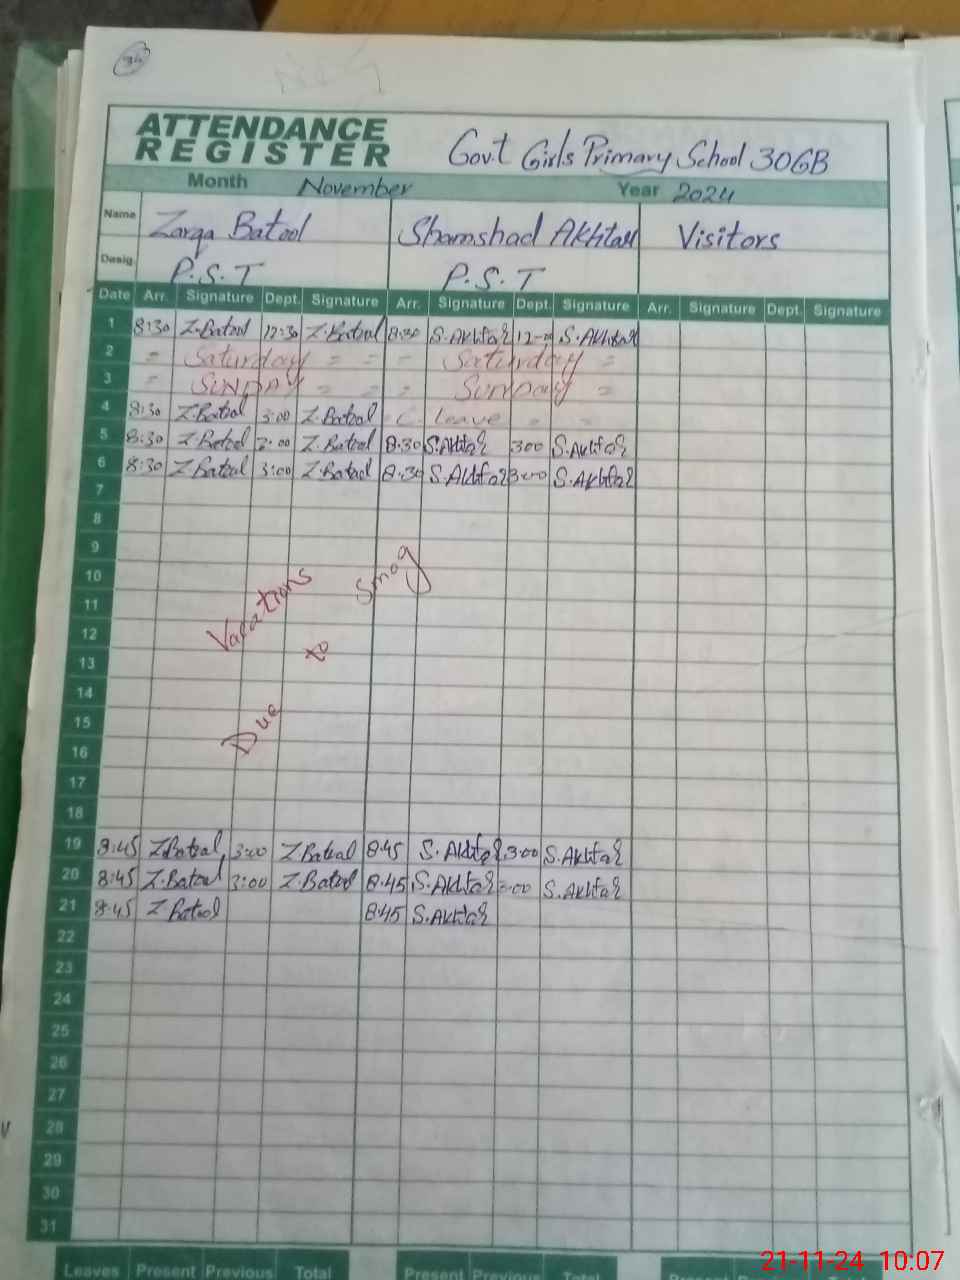 34
ATTENDANCE
REGISTER
Govt Girls Primary School 30GB
Month November Year 2024
Name Zarqa Batool Shamshad Akhtar Visitors
Desig. P.S.T P.S.T
Date Arr. Signature Dept. Signature Arr. Signature Dept. Signature Arr. Signature Dept. Signature
1 8:30 Z.Batool 12:30 Z.Batool 8:30 S.Akhtar 12- S.Akhtar
2 = Saturday = = = - Saturday =
3 = SUNDAY = = = SUNDAY =
4 8:30 Z.Batool 3:00 Z.Batool C. Leave = =
5 8:30 Z.Batool 3:00 Z.Batool 8:30 S.Akhtar 300 S.Akhtar
6 8:30 Z.Batool 3:00 Z.Batool 8:30 S.Akhtar 3:00 S.Akhtar
7
8
9
10
11
12
13
14
15
16
17
18
Vacations
Due to Smog
19 8:45 Z.Batool 3:00 Z.Batool 8:45 S.Akhtar 3:00 S.Akhtar
20 8:45 Z.Batool 3:00 Z.Batool 8:45 S.Akhtar 3:00 S.Akhtar
21 8:45 Z.Batool 8:45 S.Akhtar
22
23
24
25
26
27
28
29
30
31
Leaves Present Previous Total Present Previous Total Present Previous
21-11-24 10:07